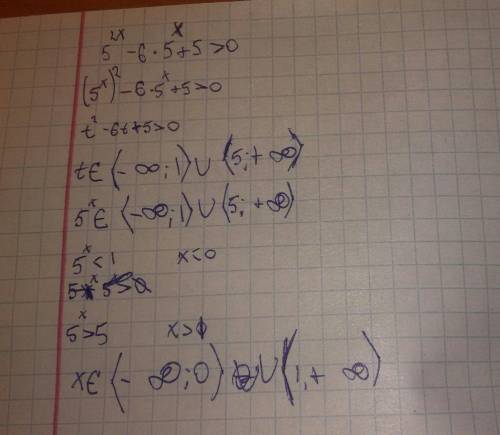 5^2x - 6 · 5^x + 5 > 0
(5^x)^2 - 6 · 5^x + 5 > 0
t^2 - 6t + 5 > 0
t ∈ (-∞; 1) ∪ (5; +∞)
5^x ∈ (-∞; 1) ∪ (5; +∞)
5^x < 1 x < 0
5^x > 5 x > 1
x ∈ (-∞; 0) ∪ (1, +∞)